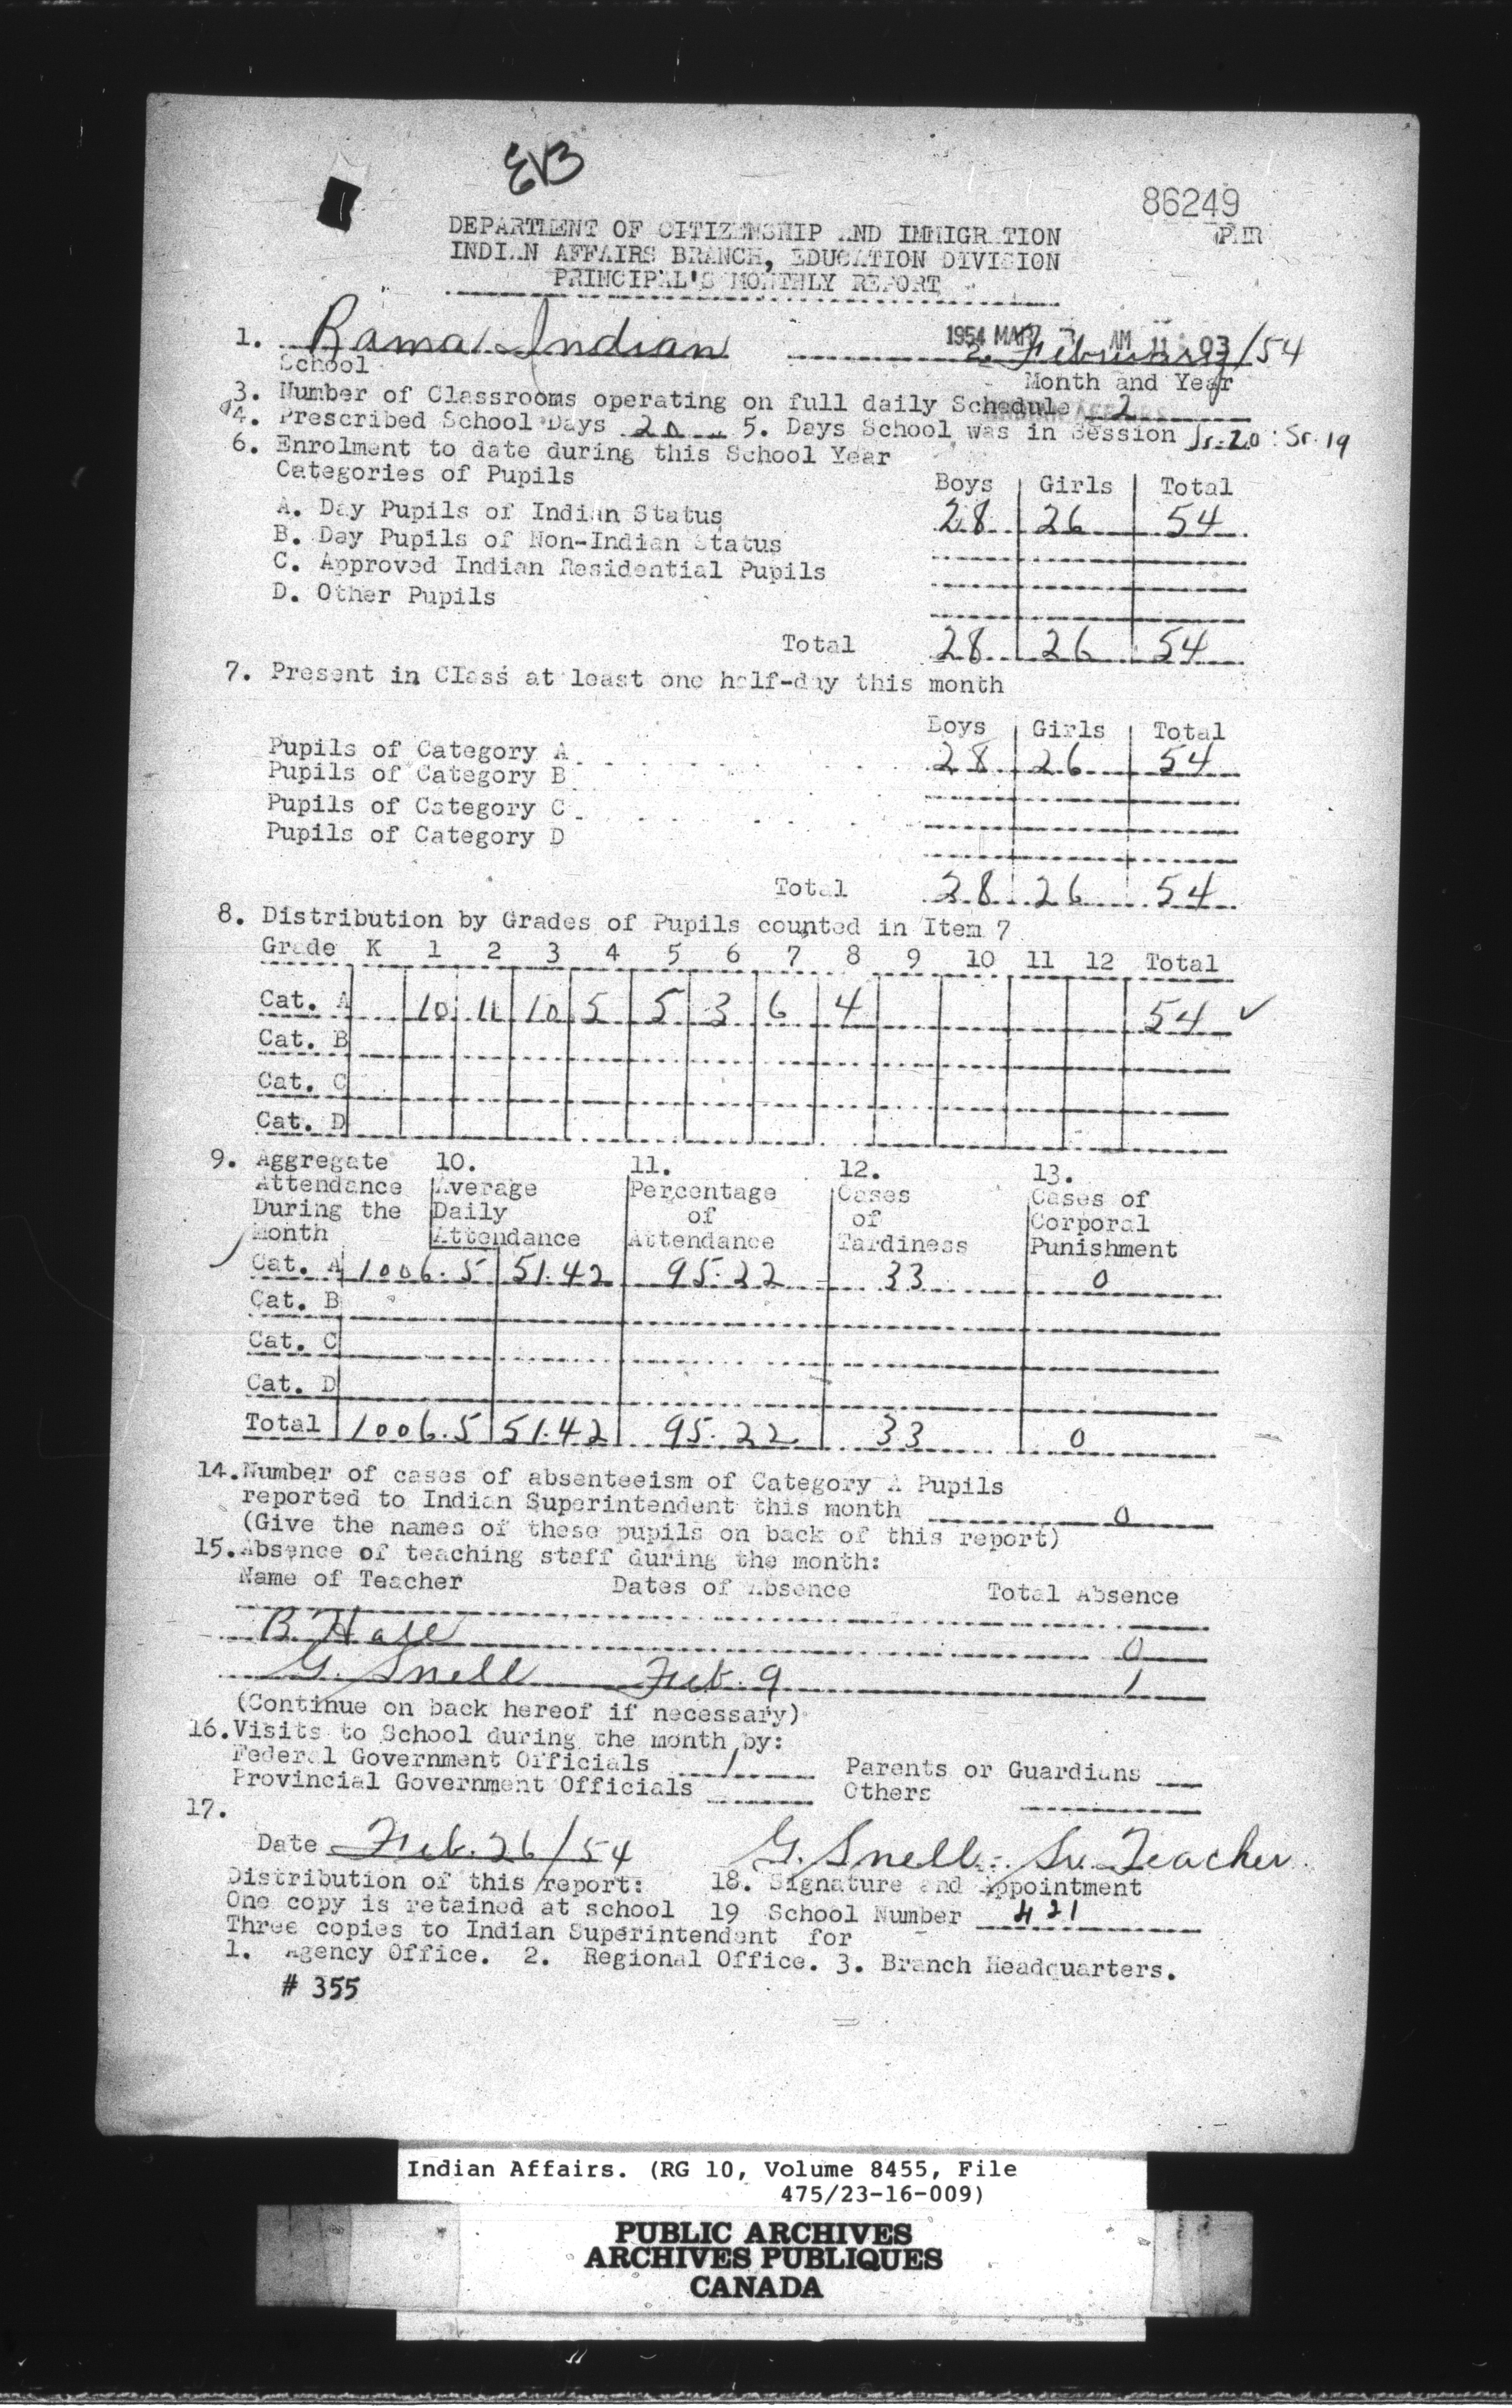 EVB
86249
DEPARTMENT OF CITIZENSHIP AND IMMIGRATION
INDIAN AFFAIRS BRANCH, EDUCATION DIVISION
PRINCIPAL'S MONTHLY REPORT
1. Rama Indian 2. February/54
1954 MAR AM 11 03
School Month and Year
3. Number of Classrooms operating on full daily Schedule 2
4. Prescribed School Days 20 5. Days School was in Session Jr. 20 : Sr. 19
6. Enrolment to date during this School Year
Categories of Pupils Boys Girls Total
A. Day Pupils of Indian Status 28 26 54
B. Day Pupils of Non-Indian Status
C. Approved Indian Residential Pupils
D. Other Pupils
Total 28 26 54
7. Present in Class at least one half-day this month
Boys Girls Total
Pupils of Category A 28 26 54
Pupils of Category B
Pupils of Category C
Pupils of Category D
Total 28 26 54
8. Distribution by Grades of Pupils counted in Item 7
Grade K 1 2 3 4 5 6 7 8 9 10 11 12 Total
Cat. A 10 11 10 5 5 3 6 4 54 ✓
Cat. B
Cat. C
Cat. D
9. Aggregate 10. 11. 12. 13.
Attendance Average Percentage Cases Cases of
During the Daily of of Corporal
Month Attendance Attendance Tardiness Punishment
Cat. A 1006.5 51.42 95.22 33 0
Cat. B
Cat. C
Cat. D
Total 1006.5 51.42 95.22 33 0
14. Number of cases of absenteeism of Category A Pupils
reported to Indian Superintendent this month 0
(Give the names of these pupils on back of this report)
15. Absence of teaching staff during the month:
Name of Teacher Dates of Absence Total Absence
B. Hall 0
G. Snell Feb. 9 1
(Continue on back hereof if necessary)
16. Visits to School during the month by:
Federal Government Officials 1 Parents or Guardians
Provincial Government Officials Others
17.
Date Feb. 26/54 G. Snell - Sr. Teacher
Distribution of this report: 18. Signature and Appointment
One copy is retained at school 19 School Number 421
Three copies to Indian Superintendent for
1. Agency Office. 2. Regional Office. 3. Branch Headquarters.
# 355
Indian Affairs. (RG 10, Volume 8455, File
475/23-16-009)
PUBLIC ARCHIVES
ARCHIVES PUBLIQUES
CANADA